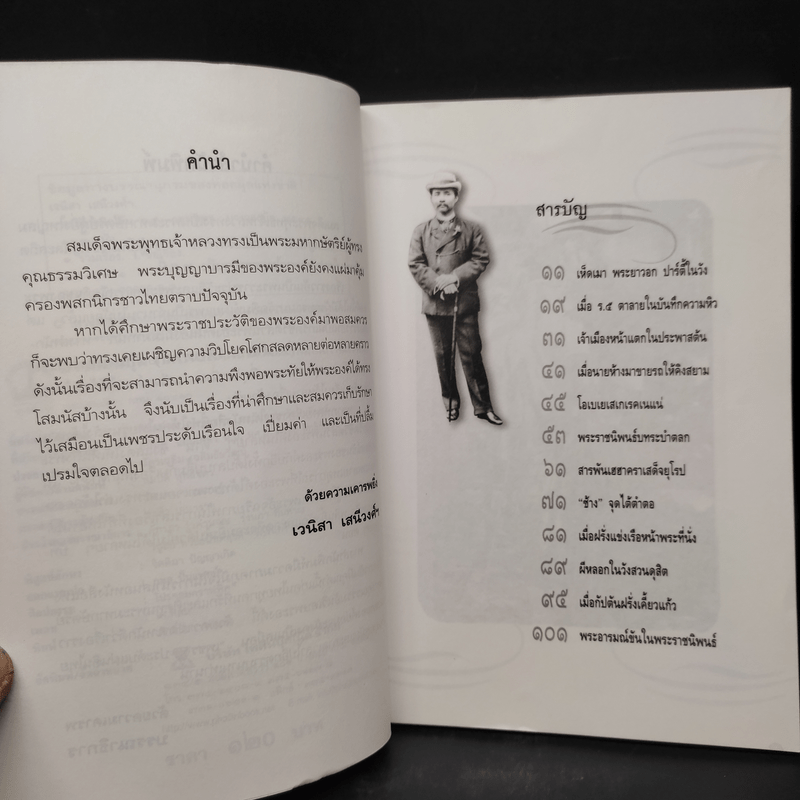 คำนำ
สมเด็จพระพุทธเจ้าหลวงทรงเป็นพระมหากษัตริย์ผู้ทรง
คุณธรรมวิเศษ พระบุญญาบารมีของพระองค์ยังคงแผ่มาคุ้ม
ครองพสกนิกรชาวไทยตราบปัจจุบัน
หากได้ศึกษาพระราชประวัติของพระองค์มาพอสมควร
ก็จะพบว่าทรงเคยเผชิญความวิปโยคโศกสลดหลายต่อหลายคราว
ดังนั้นเรื่องที่จะสามารถนำความพึงพอพระทัยให้พระองค์ได้ทรง
โสมนัสบ้างนั้น จึงนับเป็นเรื่องที่น่าศึกษาและสมควรเก็บรักษา
ไว้เสมือนเป็นเพชรประดับเรือนใจ เปี่ยมค่า และเป็นที่ปลื้ม
เปรมใจตลอดไป
ด้วยความเคารพยิ่ง
เวนิสา เสนีวงศ์ฯ
สารบัญ
๑๑ เห็ดเมา พระยาวอก ปาร์ตี้ในวัง
๑๙ เมื่อ ร.๕ ตาลายในบันทึกความหิว
๓๑ เจ้าเมืองหน้าแตกในประพาสต้น
๔๑ เมื่อนายห้างมาขายรถให้คิงสยาม
๔๕ โอเบเยเสเกเรคเนแน่
๕๓ พระราชนิพนธ์บทระบำตลก
๖๑ สารพันเฮฮาคราเสด็จยุโรป
๗๑ "ช้าง" จุดไต้ตำตอ
๘๑ เมื่อฝรั่งแข่งเรือหน้าพระที่นั่ง
๘๙ ผีหลอกในวังสวนดุสิต
๙๕ เมื่อกัปตันฝรั่งเคี้ยวแก้ว
๑๐๑ พระอารมณ์ขันในพระราชนิพนธ์